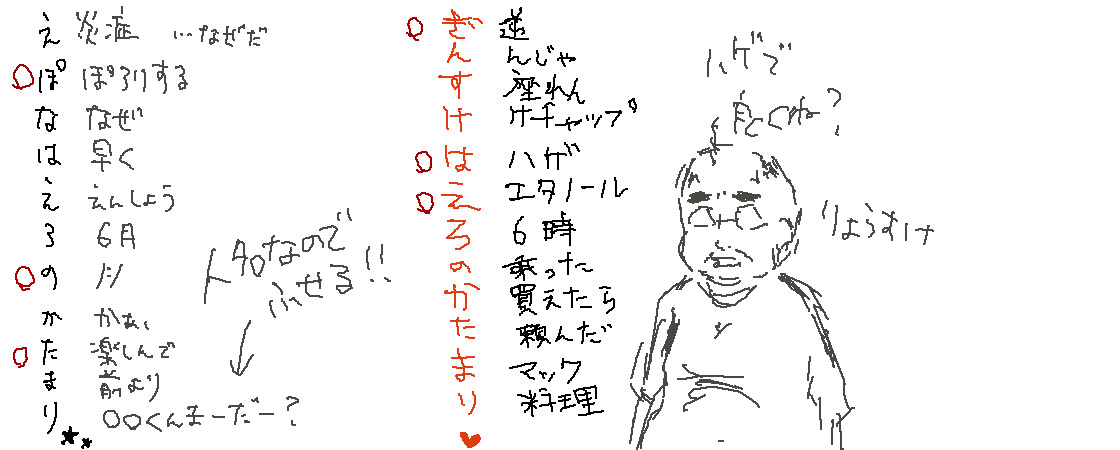 えぽなはえろのかたまり
炎症 …なぜだ
ぽろりする
なぜ
早く
えんしょう
6月
楽しんで
前より
〇〇くんまーだー?
人名なので
ふせる!!
ぎんすけはえろのかたまり
逆
んじゃ
座れん
ケチャップ
ハゲ
エタノール
6時
乗った
買えたら
頼んだ
マック
料理
ハゲで
良くね?
りょうすけ